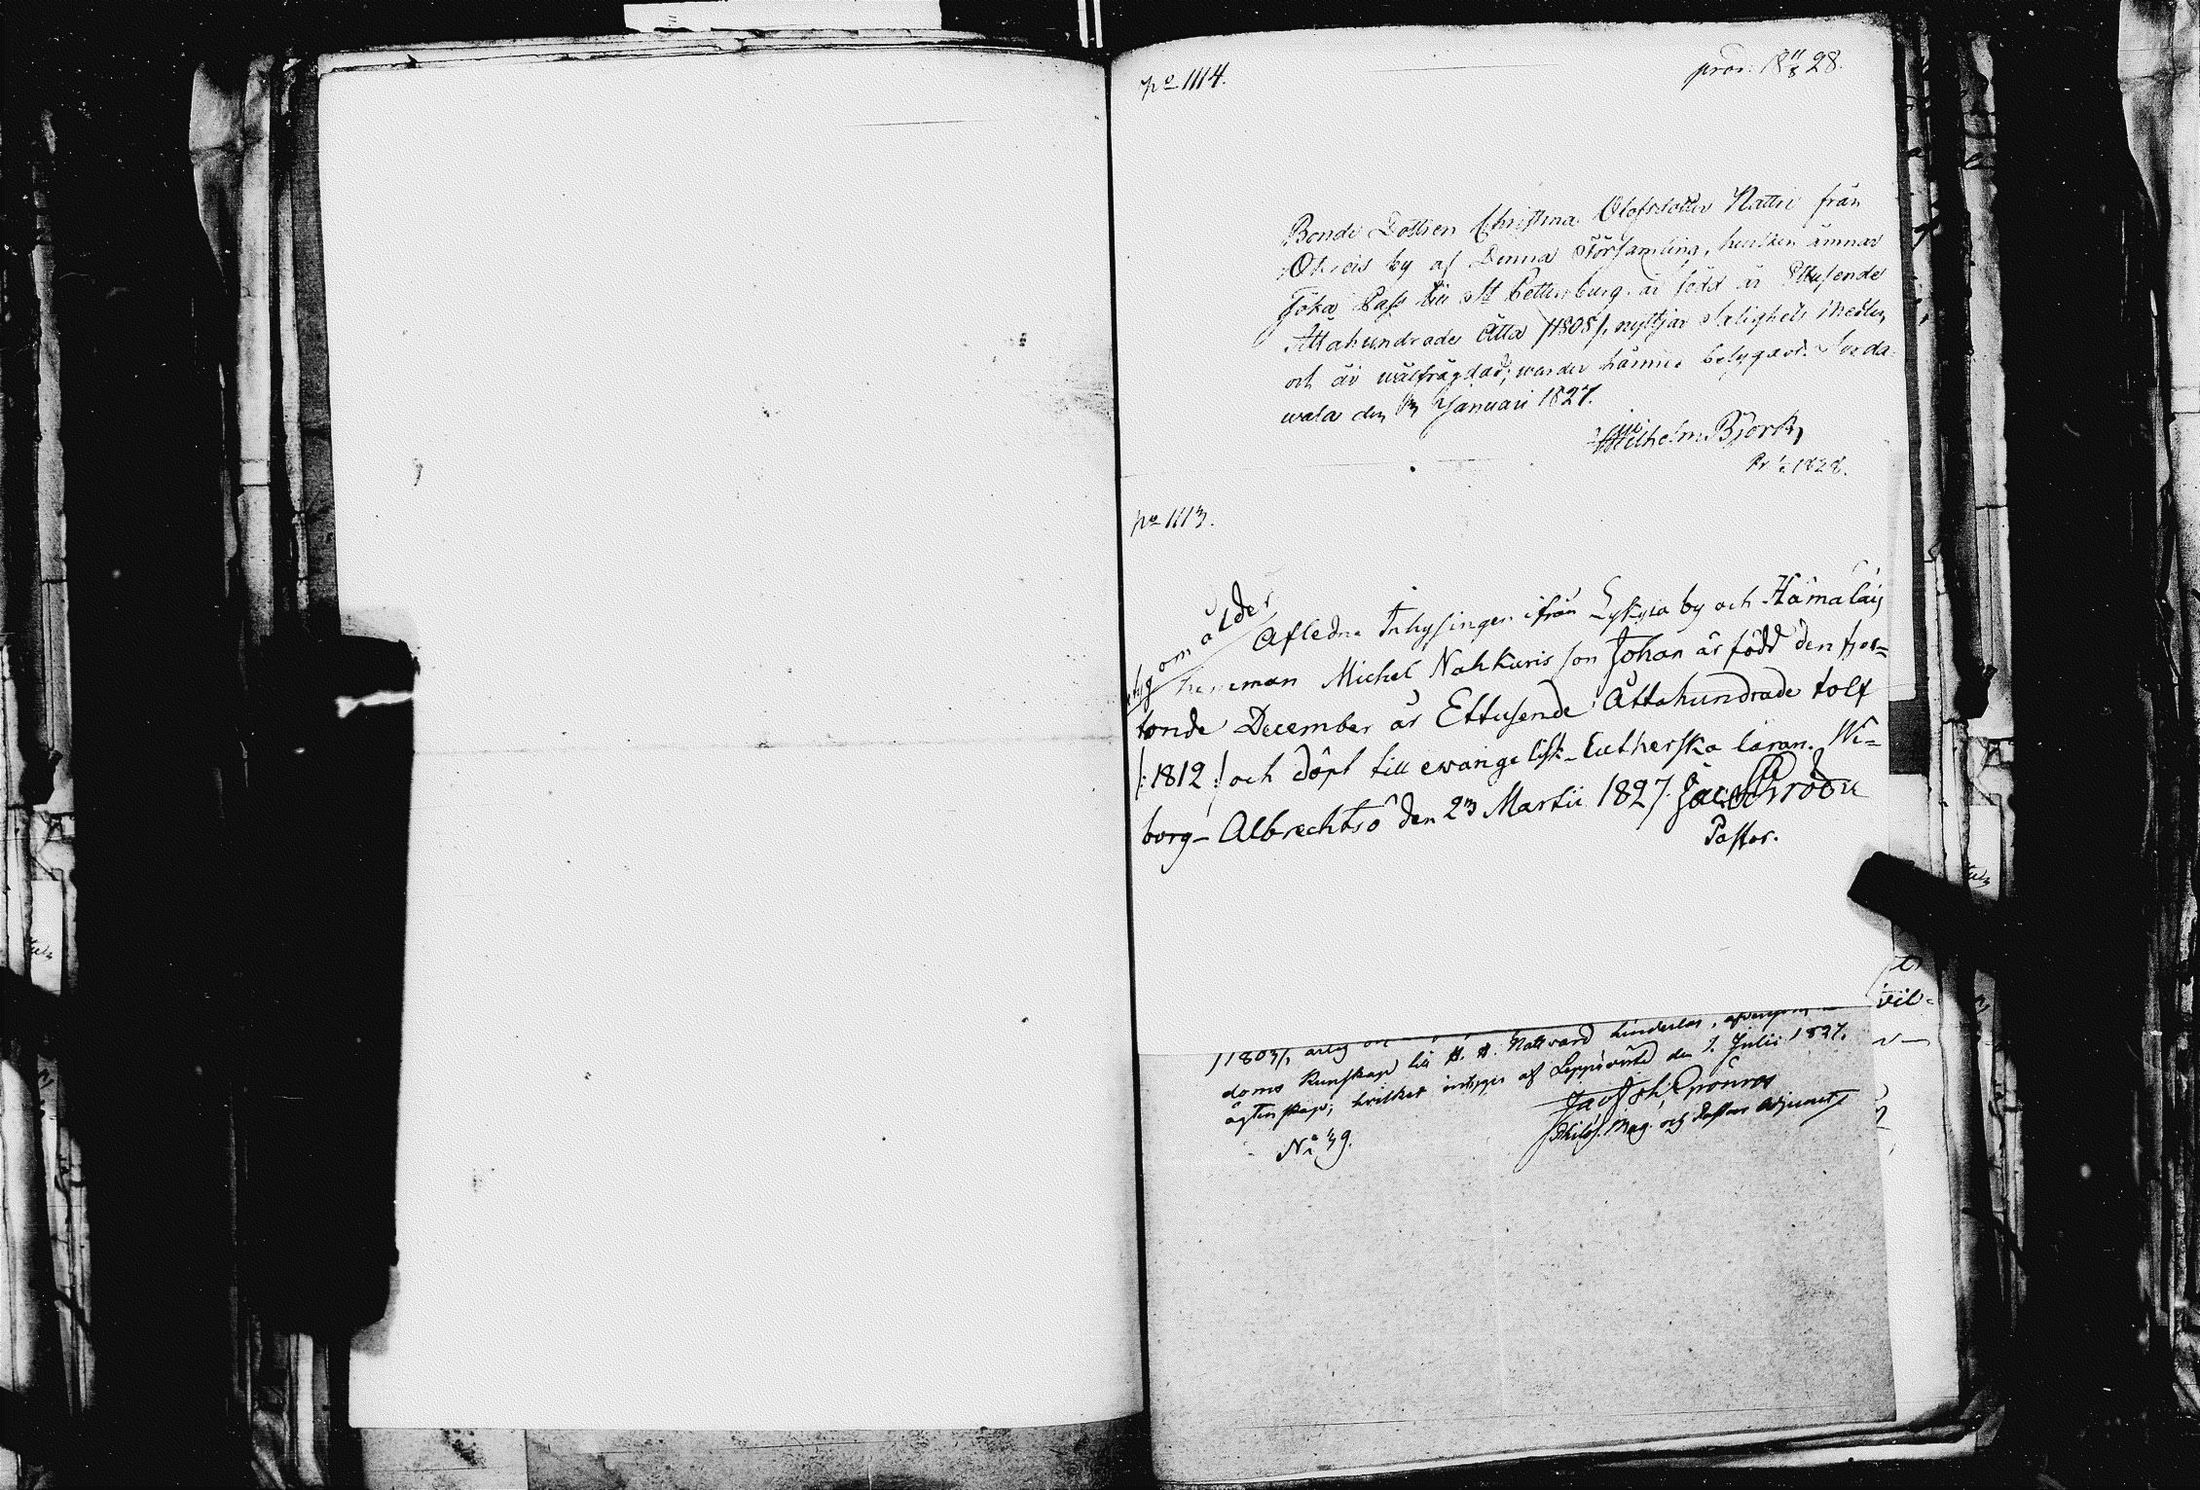 No 1114.
prod: 18 11/8 28.
Bonde Dottren Christina Olofsdotter Nattri från
by af Denna Församling, hvilken ämnar
söka Pass till St Pettersburg, är född år Ettusende
Åttahundrade Åtta /1808/, nyttjar Salighets Medlen
och är wälfrägdad; warder härmed betygadt. Sorda-
wala den Januari 1827.
Wilhelm Björk,
1828.
No 1113.
om ålder
Afledne Inhysingen ifrån Lykyla by och Hämäläis
hemman Michel Nahkuris son Johan är född den fjor=
tonde December år Ettusende Åttahundrade tolf
/:1812:/ och döpt till ewangelisk-Lutherska läran. Wi=
borg- Albrechtsö den 23 Martii 1827.
Pastor.
/1803/, ärlig
doms kunskap till H. H. Nattvard hinderlös,
ägtenskap; hvilket intygas af Leppävirta den 1. Julii 1827.
Philos. Mag. och Pastors Adjunct
No 39.